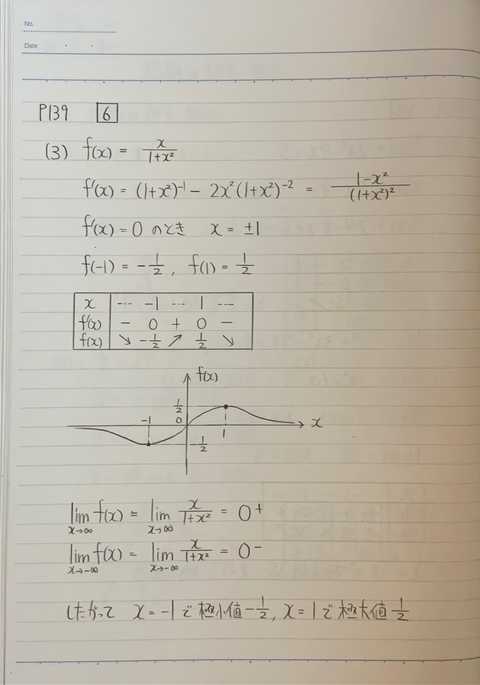 No.
Date
P139 6
(3) f(x) = x/(1+x²)
f'(x) = (1+x²)⁻¹ − 2x²(1+x²)⁻² = (1−x²)/(1+x²)²
f'(x) = 0 のとき x = ±1
f(-1) = −1/2, f(1) = 1/2
x ... −1 ... 1 ...
f'(x) − 0 + 0 −
f(x) ↘ −1/2 ↗ 1/2 ↘
f(x)
1/2
−1 0 x
1
−1/2
lim x→∞ f(x) = lim x→∞ x/(1+x²) = 0⁺
lim x→−∞ f(x) = lim x→−∞ x/(1+x²) = 0⁻
したがって x = −1 で 極小値 −1/2, x = 1 で 極大値 1/2